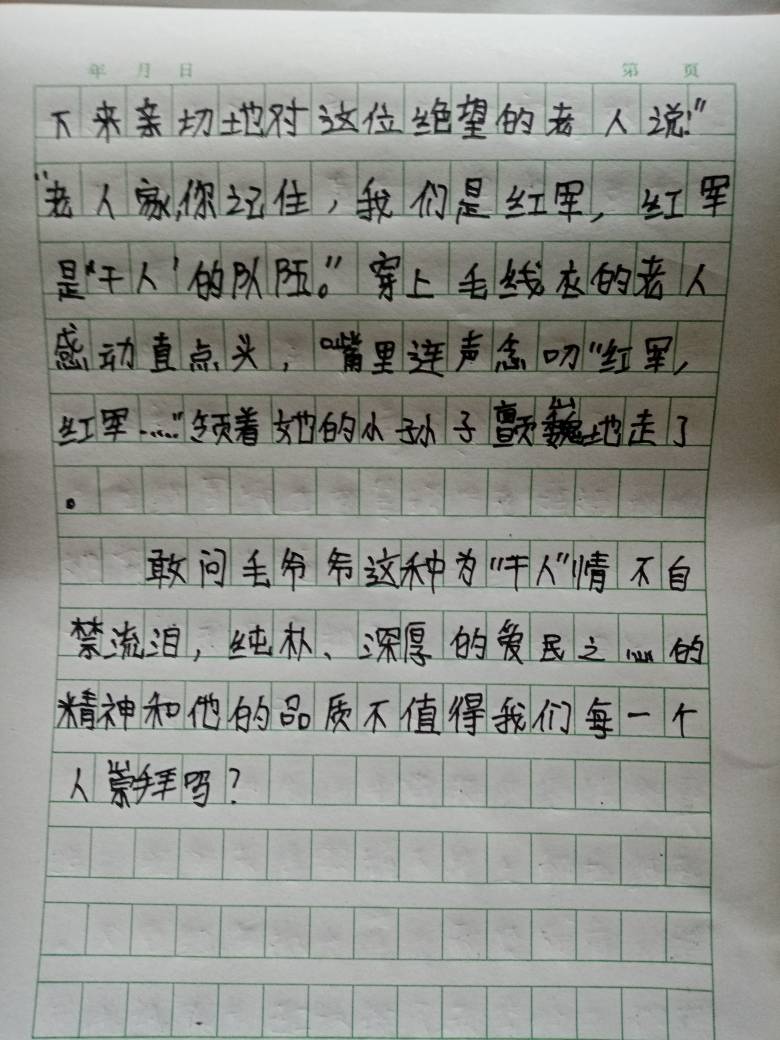 年 月 日 第 页
下来亲切地对这位绝望的老人说:"
"老人家,你记住,我们是红军,红军
是"干人'的队伍。"穿上毛线衣的老人
感动直点头,嘴里连声念叨"红军,
红军……"领着她的小孙子颤巍地走了
。
敢问毛爷爷这种为"干人"情不自
禁流泪,纯朴、深厚的爱民之心的
精神和他的品质不值得我们每一个
人崇拜吗?